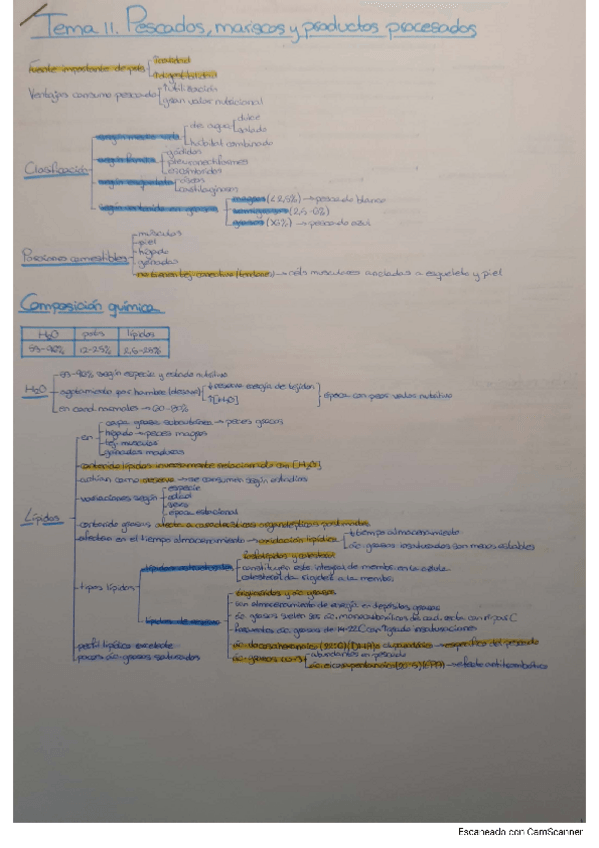 Tema 11. Pescados, mariscos y productos procesados
Fuente importante de prots
calidad
digestibilidad
Ventajas consumo pescado
↑utilización
gran valor nutricional
Clasificación
según medio vida
de agua
dulce
salada
hábitat combinado
según forma
gádidos
pleuronectiformes
escómbridos
según esqueleto
óseos
cartilaginosos
según contenido en grasas
magros (<2,5%) → pescado blanco
semigrasos (2,5-6%)
grasos (>6%) → pescado azul
Porciones comestibles
músculos
piel
hígado
gónadas
no tienen tej. conectivo (tendones) → céls musculares ancladas a esqueleto y piel
Composición química
H₂O prots lípidos
53-90% 12-25% 2,5-25%
H₂O
según especie y estado nutritivo
agotamiento por hambre (desove)
↓reserva energía de tejidos
↑[H₂O]
época con peor valor nutritivo
en cond. normales → 60-80%
Lípidos
en
capa grasa subcutánea → peces grasos
hígado → peces magros
tej. muscular
gónadas maduras
contenido lípidos inversamente relacionado con [H₂O]
actúan como reserva → se consumen según estadíos
variaciones según
especie
edad
sexo
época estacional
contenido grasas afecta a características organolépticas postmortem
afectan en el tiempo almacenamiento → oxidación lipídica
↑tiempo almacenamiento
ác. grasos insaturados son menos estables
tipos lípidos
lípidos estructurales
fosfolípidos y colesterol
constituyen este integral de membr. en la célula
colesterol da rigidez a la membr.
lípidos de reserva
triglicéridos y ác. grasos
son almacenamiento de energía en depósitos grasos
ác. grasos suelen ser ác. monocarboxílicos de cad. recta con nº par C
frecuentes ác. grasos de 14-22C con ↑grado insaturaciones
ác. docosahexaenoico (22:6) (DHA) → específico del pescado
ác. grasos ω-3
abundantes en pescado
ác. eicosapentaenoico (20:5) (EPA) → efecto antitrombótico
perfil lipídico excelente
pocos ác. grasos saturados
Escaneado con CamScanner